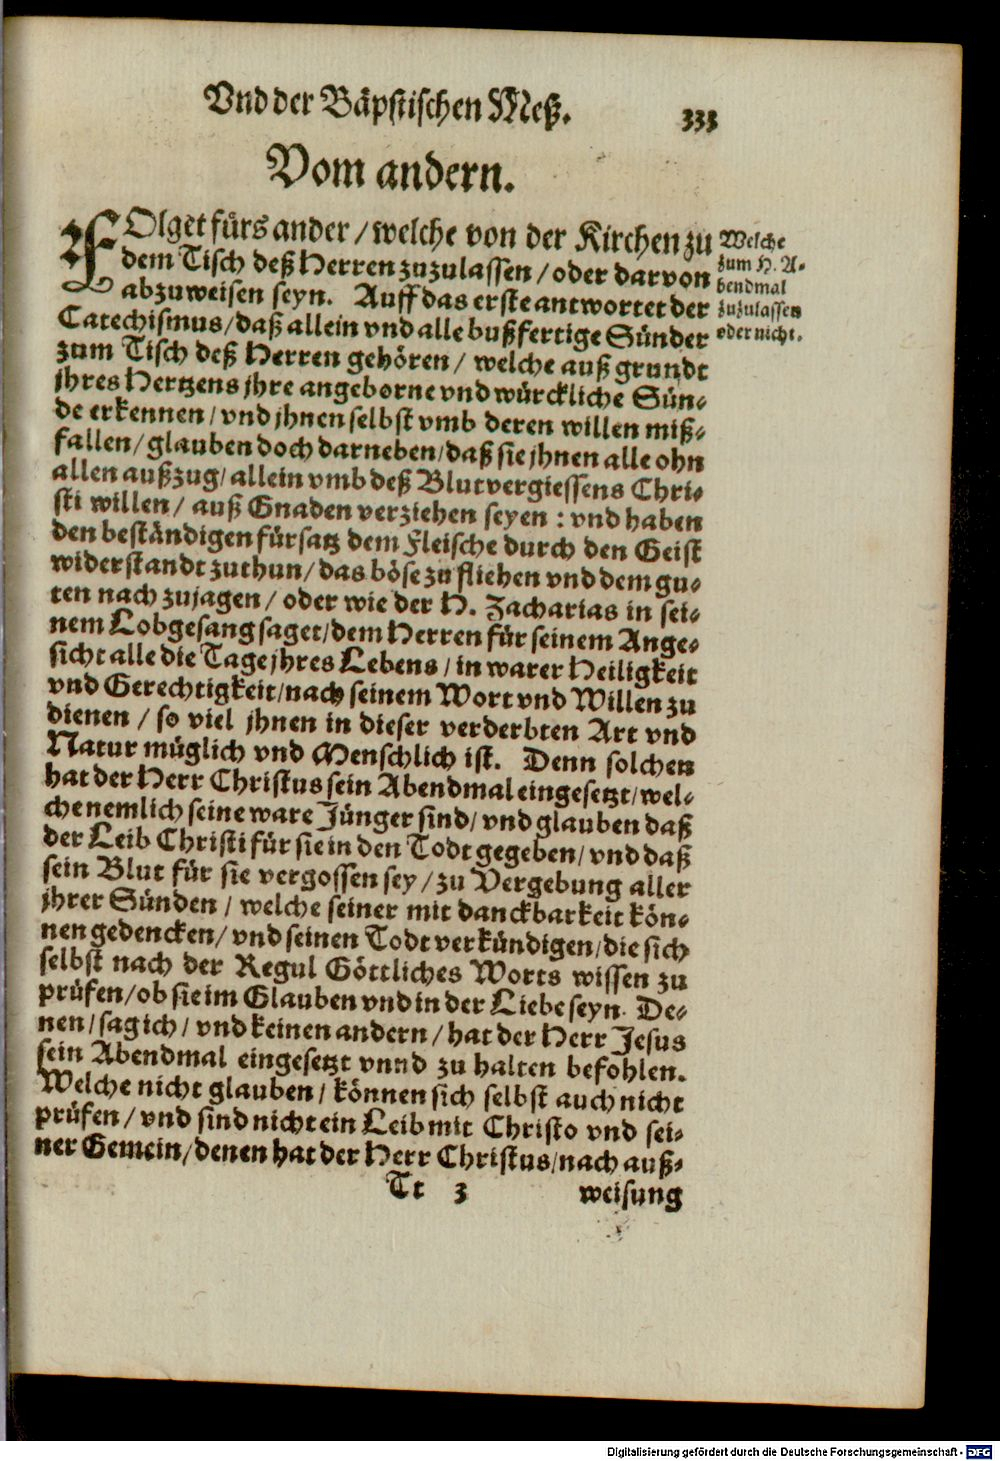 Vnd der Bäpstischen Meß. 333
Vom andern.
FOlget fürs ander / welche von der Kirchen zu
dem Tisch deß Herren zuzulassen / oder darvon
abzuweisen seyn. Auff das erste antwortet der
Catechismus / daß allein vnd alle bußfertige Sünder
zum Tisch deß Herren gehören / welche auß grundt
jhres Hertzens jhre angeborne vnd würckliche Sün-
de erkennen / vnd jhnen selbst vmb deren willen miß-
fallen / glauben doch darneben / daß sie jhnen alle ohn
allen außzug / allein vmb deß Blutvergiessens Chri-
sti willen / auß Gnaden verziehen seyen : vnd haben
den beständigen fürsatz dem Fleische durch den Geist
widerstandt zuthun / das böse zu fliehen vnd dem gu-
ten nach zujagen / oder wie der H. Zacharias in sei-
nem Lobgesang saget / dem Herren für seinem Ange-
sicht alle die Tage jhres Lebens / in warer Heiligkeit
vnd Gerechtigkeit / nach seinem Wort vnd Willen zu
dienen / so viel jhnen in dieser verderbten Art vnd
Natur müglich vnd Menschlich ist. Denn solchen
hat der Herr Christus sein Abendmal eingesetzt / wel-
che nemlich seine ware Jünger sind / vnd glauben daß
der Leib Christi für sie in den Todt gegeben / vnd daß
sein Blut für sie vergossen sey / zu Vergebung aller
jhrer Sünden / welche seiner mit danckbarkeit kön-
nen gedencken / vnd seinen Todt verkündigen / die sich
selbst nach der Regul Göttliches Worts wissen zu
prüfen / ob sie im Glauben vnd in der Liebe seyn. De-
nen / sag ich / vnd keinen andern / hat der Herr Jesus
sein Abendmal eingesetzt vnnd zu halten befohlen.
Welche nicht glauben / können sich selbst auch nicht
prüfen / vnd sind nicht ein Leib mit Christo vnd sei-
ner Gemein / denen hat der Herr Christus / nach auß-
Tt 3 weisung
Welche
zum H. A-
bendmal
zuzulassen
oder nicht.
Digitalisierung gefördert durch die Deutsche Forschungsgemeinschaft - DFG